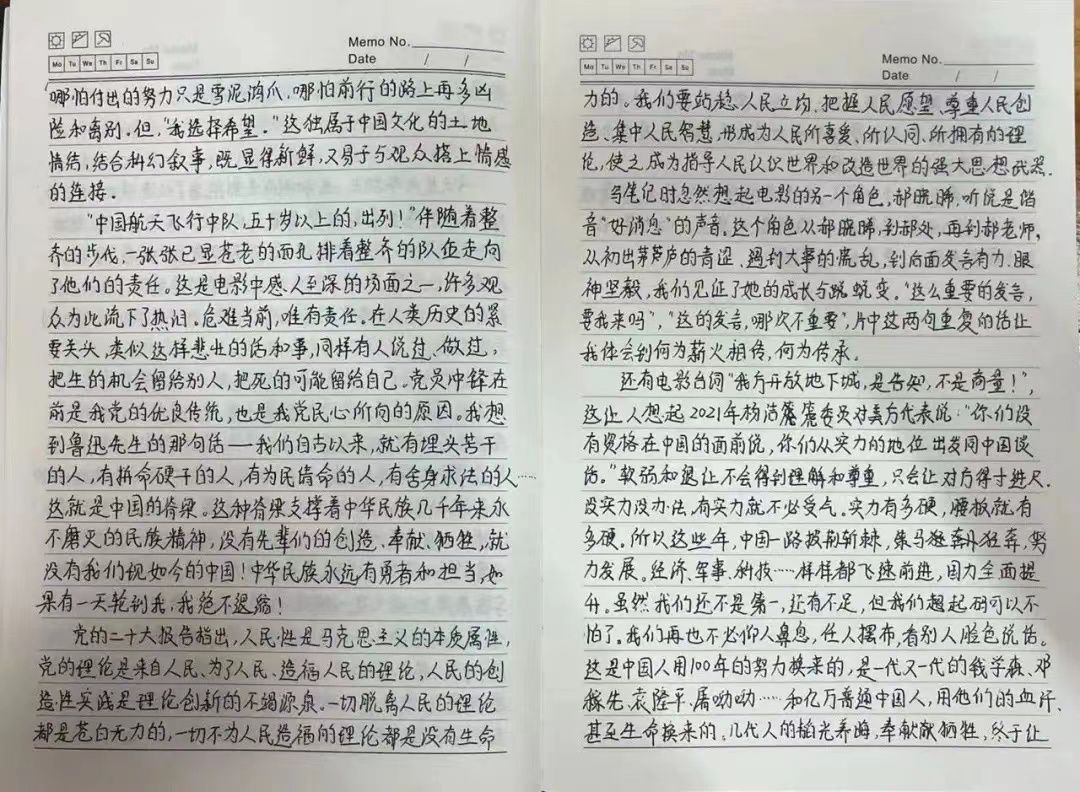 Memo No.
Mo Tu We Th Fr Sa Su
Date / /
哪怕付出的努力只是雪泥鸿爪，哪怕前行的路上再多凶
险和离别。但，“我选择希望。”这独属于中国文化的土地
情结，结合科幻叙事，既显得新鲜，又易于与观众搭上情感
的连接。
“中国航天飞行中队，五十岁以上的，出列！”伴随着整
齐的步伐，一张张已显苍老的面孔排着整齐的队伍走向
了他们的责任。这是电影中感人至深的场面之一，许多观
众为此流下了热泪。危难当前，唯有责任。在人类历史的紧
要关头，类似这样悲壮的话和事，同样有人说过、做过，
把生的机会留给别人，把死的可能留给自己。党员冲锋在
前是我党的优良传统，也是我党民心所向的原因。我想
到鲁迅先生的那句话——我们自古以来，就有埋头苦干
的人，有拼命硬干的人，有为民请命的人，有舍身求法的人……
这就是中国的脊梁。这种脊梁支撑着中华民族几千年来永
不磨灭的民族精神，没有先辈们的创造、奉献、牺牲，就
没有我们现如今的中国！中华民族永远有勇者和担当，如
果有一天轮到我，我绝不退缩！
党的二十大报告指出，人民性是马克思主义的本质属性，
党的理论是来自人民、为了人民、造福人民的理论，人民的创
造性实践是理论创新的不竭源泉。一切脱离人民的理论
都是苍白无力的，一切不为人民造福的理论都是没有生命
Memo No.
Mo Tu We Th Fr Sa Su
Date / /
力的。我们要站稳人民立场、把握人民愿望、尊重人民创
造、集中人民智慧，形成为人民所喜爱、所认同、所拥有的理
论，使之成为指导人民认识世界和改造世界的强大思想武器。
写笔记时忽然想起电影的另一个角色，郝晓晞，听说是谐
音“好消息”的声音。这个角色从郝晓晞，到郝处，再到郝老师，
从初出茅芦庐的青涩、遇到大事的慌乱，到后面发言有力、眼
神坚毅，我们见证了她的成长与蜕变。“这么重要的发言，
要我来吗”，“这的发言，哪次不重要”，片中这两句重复的话让
我体会到何为薪火相传，何为传承。
还有电影台词“我方开放地下城，是告知，不是商量！”，
这让人想起2021年杨洁篪委员对美方代表说：“你们没
有资格在中国的面前说，你们从实力的地位出发同中国谈
话。”软弱和退让不会得到理解和尊重，只会让对方得寸进尺。
没实力没办法，有实力就不必受气。实力有多硬，腰板就有
多硬。所以这些年，中国一路披荆斩棘，策马狂奔，努
力发展。经济、军事、科技……样样都飞速前进，国力全面提
升。虽然我们还不是第一，还有不足，但我们起码可以不
怕了。我们再也不必仰人鼻息，任人摆布，看别人脸色说话。
这是中国人用100年的努力换来的，是一代又一代的钱学森、邓
稼先、袁隆平、屠呦呦……和亿万普通中国人，用他们的血汗、
甚至生命换来的。几代人的韬光养晦，奉献牺牲，终于让